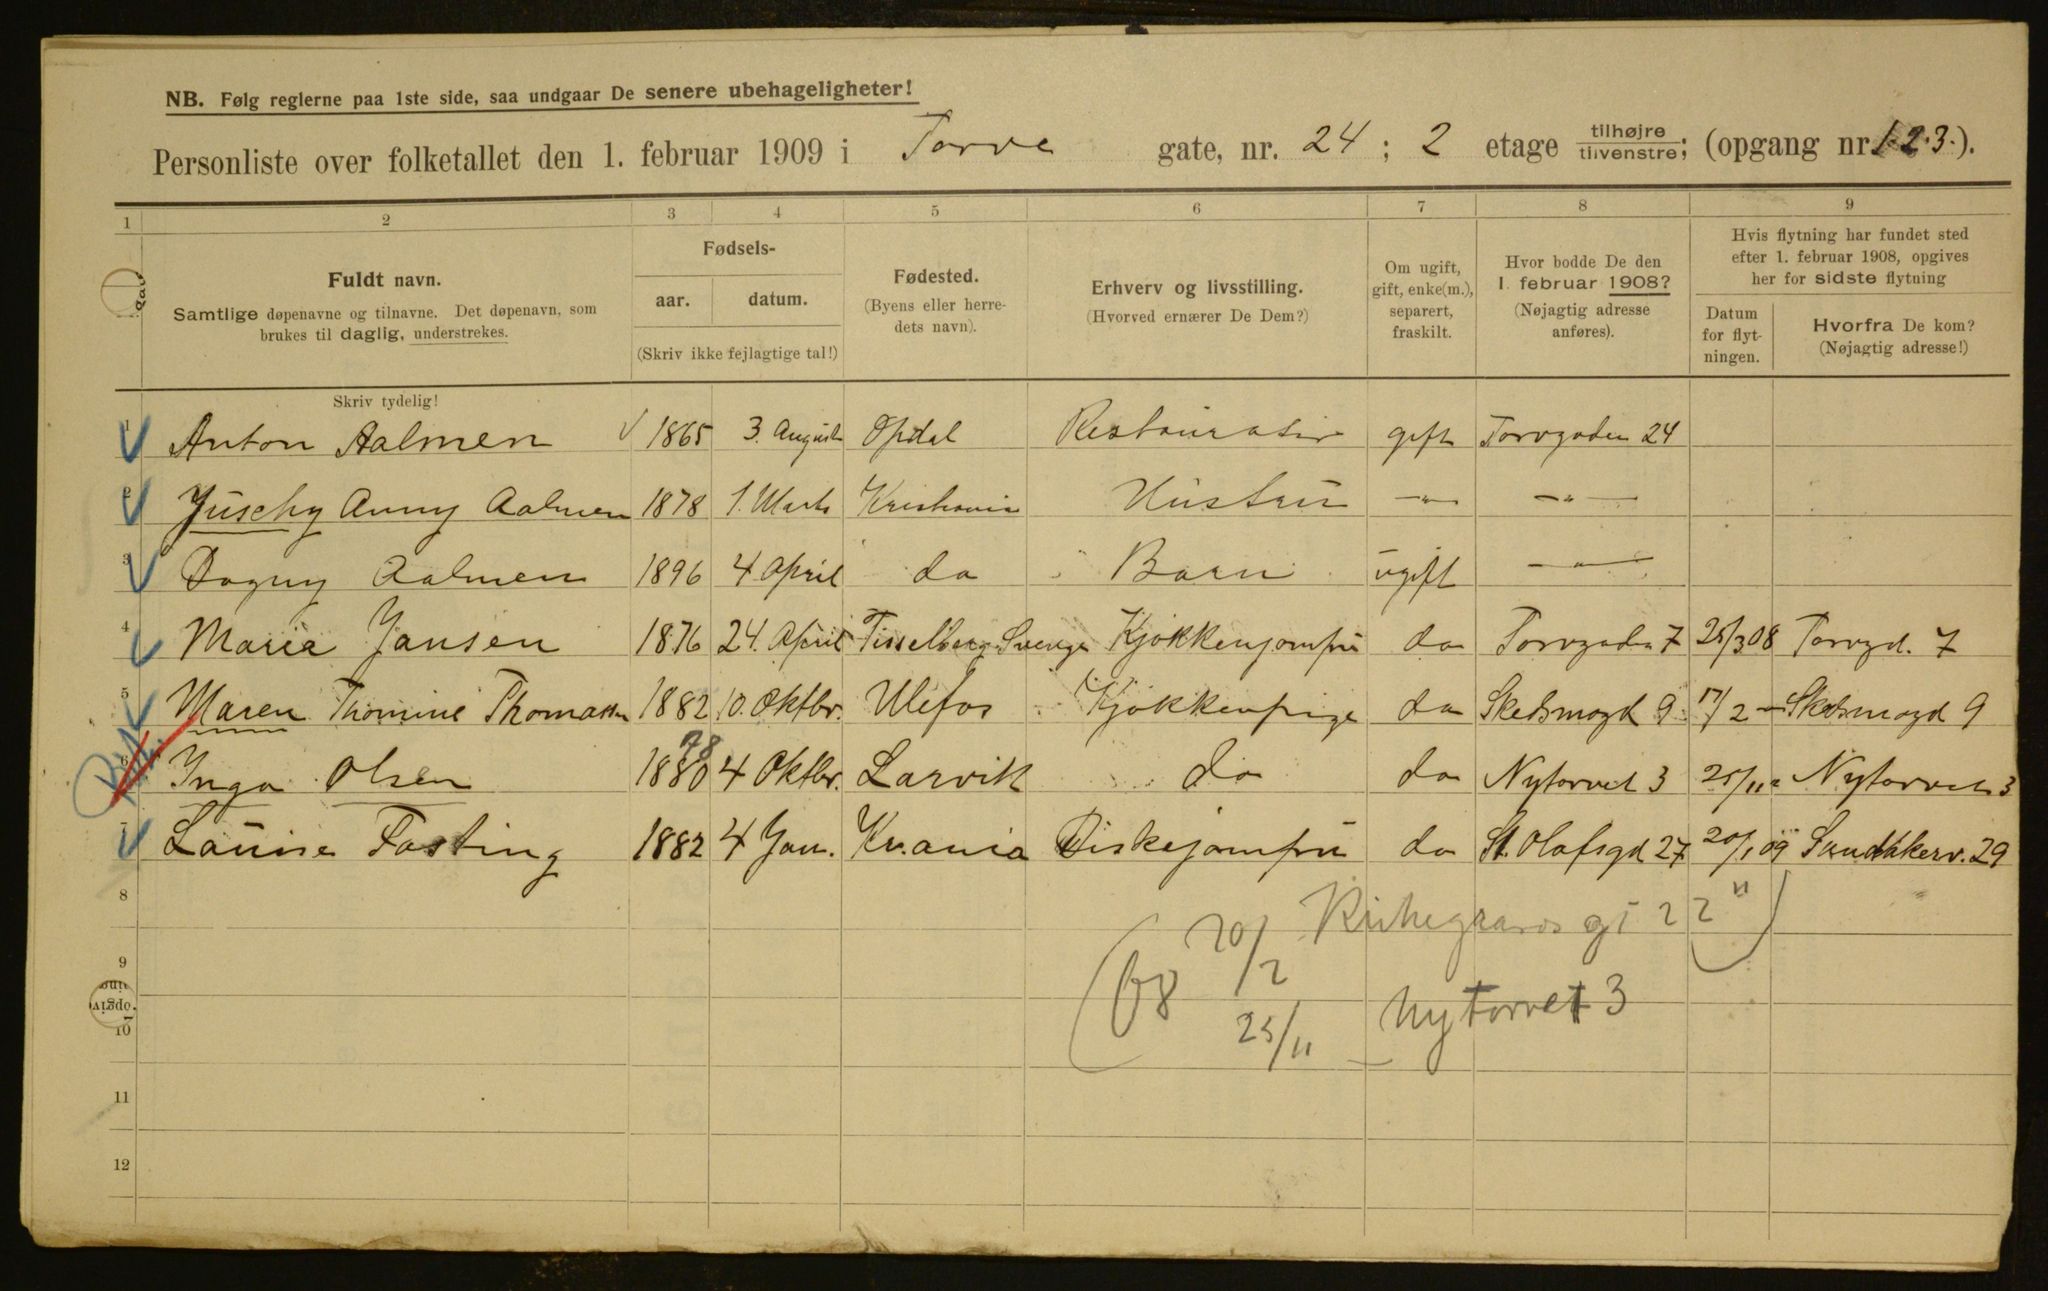 NB. Følg reglerne paa 1ste side, saa undgaar De senere ubehageligheter!
Personliste over folketallet den 1. februar 1909 i Torve gate, nr. 24 ; 2 etage tilhøjre tilvenstre; (opgang nr. 1.2.3.).
1 2 3 4 5 6 7 8 9
Fuldt navn.
Samtlige døpenavne og tilnavne. Det døpenavn, som
brukes til daglig, understrekes.
Fødsels-
aar. datum.
(Skriv ikke fejlagtige tal!)
Fødested.
(Byens eller herre-
dets navn).
Erhverv og livsstilling.
(Hvorved ernærer De Dem?)
Om ugift,
gift, enke(m.),
separert,
fraskilt.
Hvor bodde De den
1. februar 1908?
(Nøjagtig adresse
anføres).
Hvis flytning har fundet sted
efter 1. februar 1908, opgives
her for sidste flytning
Datum
for flyt-
ningen.
Hvorfra De kom?
(Nøjagtig adresse!)
Skriv tydelig!
1 Anton Aalmen 1865 3. August Opdal Restauratør gift Torvgaden 24
2 Juschy Anny Aalmen 1878 1. Marts Kristiania Hustru –"– –"–
3 Dagny Aalmen 1896 4 April do Barn ugift –"–
4 Maria Jansen 1876 24. April Tisselberg Sverige Kjøkkenjomfru do Torvgaden 7 25/3 08 Torvgd. 7
5 Maren Thomine Thomassen 1882 10. Oktbr. Ulefos Kjøkkenpige do Skedsmogd 9 17/2 – Skedsmogd 9
6 Inga Olsen 1880 78 4 Oktbr. Larvik do do Nytorvet 3 25/11 Nytorvet 3
7 Louise Fasting 1882 4 Jan. Kr.ania Diskejomfru do St. Olafsgd 27 20/1 09 Sandakerv. 29
8 20/2 22 "
9 (08
10 25/11 – Nytorvet 3
11
12